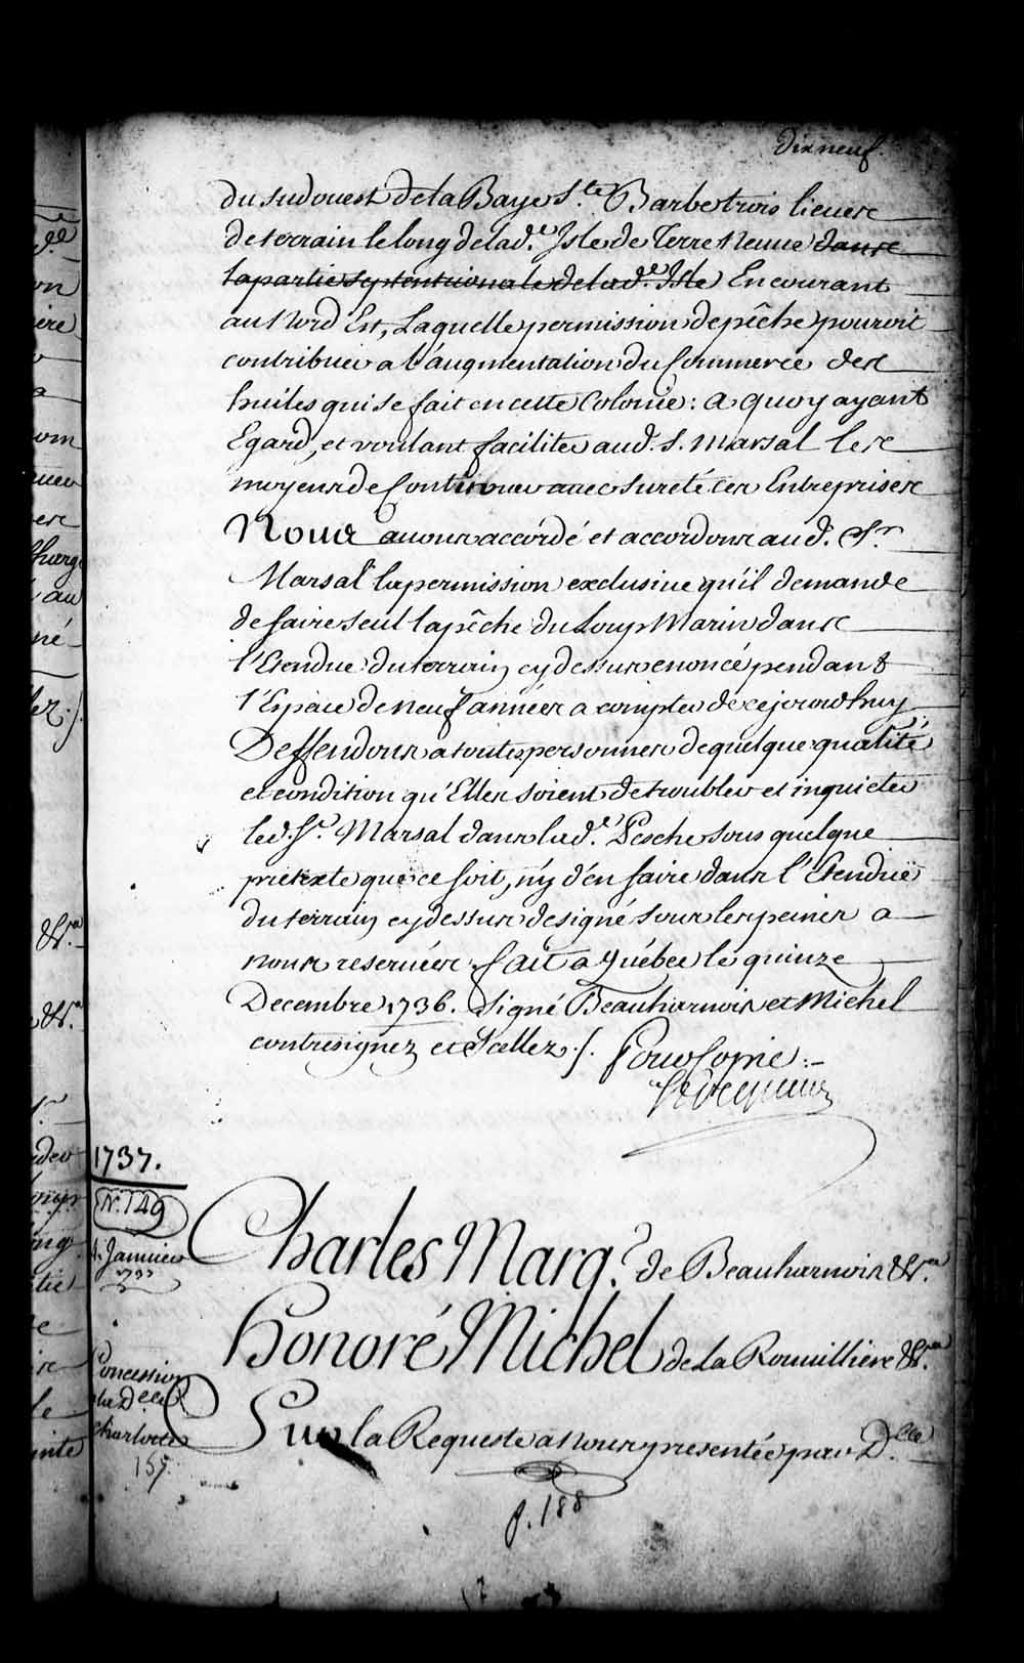 Dix neuf.
du sud ouest de la Baye Ste. Barbe trois lieues
de terrain le long de lad.e Isle de Terre Neuve dans
la partie septentrionale de lad.e Isle En courant
au Nord Est, Laquelle permission de pêche pouroit
contribuer a l'augmentation du Commerce des
huiles qui se fait en cette Colonie: a quoy ayant
Egard, et voulant faciliter aud. S. Marsal les
moyens de Continuer avec sureté ces Entreprises
Nous avons accordé et accordons aud. Sr.
Marsal la permission exclusive qu'il demande
de faire seul la pêche du Loup Marin dans
l'Etendue du terrain cy dessus enoncé pendant
l'Espace de neuf années a compter de cejourdhuy,
Deffendons a toutes personnes de quelque qualité
et condition qu'Elles soient de troubler et inquieter
led. Sr. Marsal dans lad.e Pesche sous quelque
pretexte que ce soit, n'y d'en faire dans l'Etendüe
du terrain cy dessus designé sous les peines a
nous reservées. fait a Québec le quinze
Decembre 1736. Signé Beauharnois et Michel
contresignez et Scellez ./. Pour Copie :-
1737.
N. 149
Janvier
Concession
Charlotte
159.
Charles Marq. de Beauharnois &ra.
Honoré Michel de La Rouvilliere &ra.
Sur la Requeste a Nous presentée par D.lle
p. 188